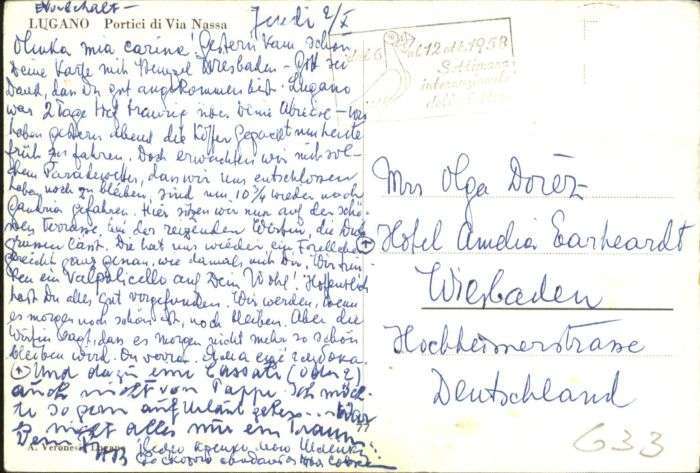 LUGANO Portici di Via Nassa
Jeudi 2/X
Olinka mia carina! Gestern kam schon
Deine Karte mit Stempel Wiesbaden - Gott sei
Dank, dass Du gut angekommen bist. Lugano
war 2 Tage tief traurig über Deine Abreise - wir
haben gestern abend die Koffer gepackt um heute
früh zu fahren. Doch erwachten wir mit sol-
chem Paradewetter, dass wir uns entschlossen
haben noch zu bleiben, sind um 10 3/4 wieder nach
Gandria gefahren. Hier sitzen wir nun auf der schö-
nen Terrasse, bei der reizenden Wirtin, die Dich
grüssen lässt. Die hat uns wieder ein Forellchen
gemacht ganz genau, wie damals mit Dir. Wir trin-
ken ein Valpolicello auf Dein Wohl! Hoffentlich
hast Du alles gut vorgefunden. Wir werden, wenn
es morgen noch schön ist, noch bleiben. Aber die
Wirtin sagt, dass es morgen nicht mehr so schön
bleiben wird. On verra.
+ Und dazu eine Cassata (oder 2)
auch nicht von Pappe. Ich möch-
te so gern auf Urlaub gehen... War
es nicht alles nur ein Traum?
Dein
A. Veronesi, Lugano
al 12 ott. 1958
Settimana
internazionale
Mrs Olga Dorèz
+ Hotel Amelia Earheardt
Wiesbaden
Hochheimerstrasse
Deutschland
633